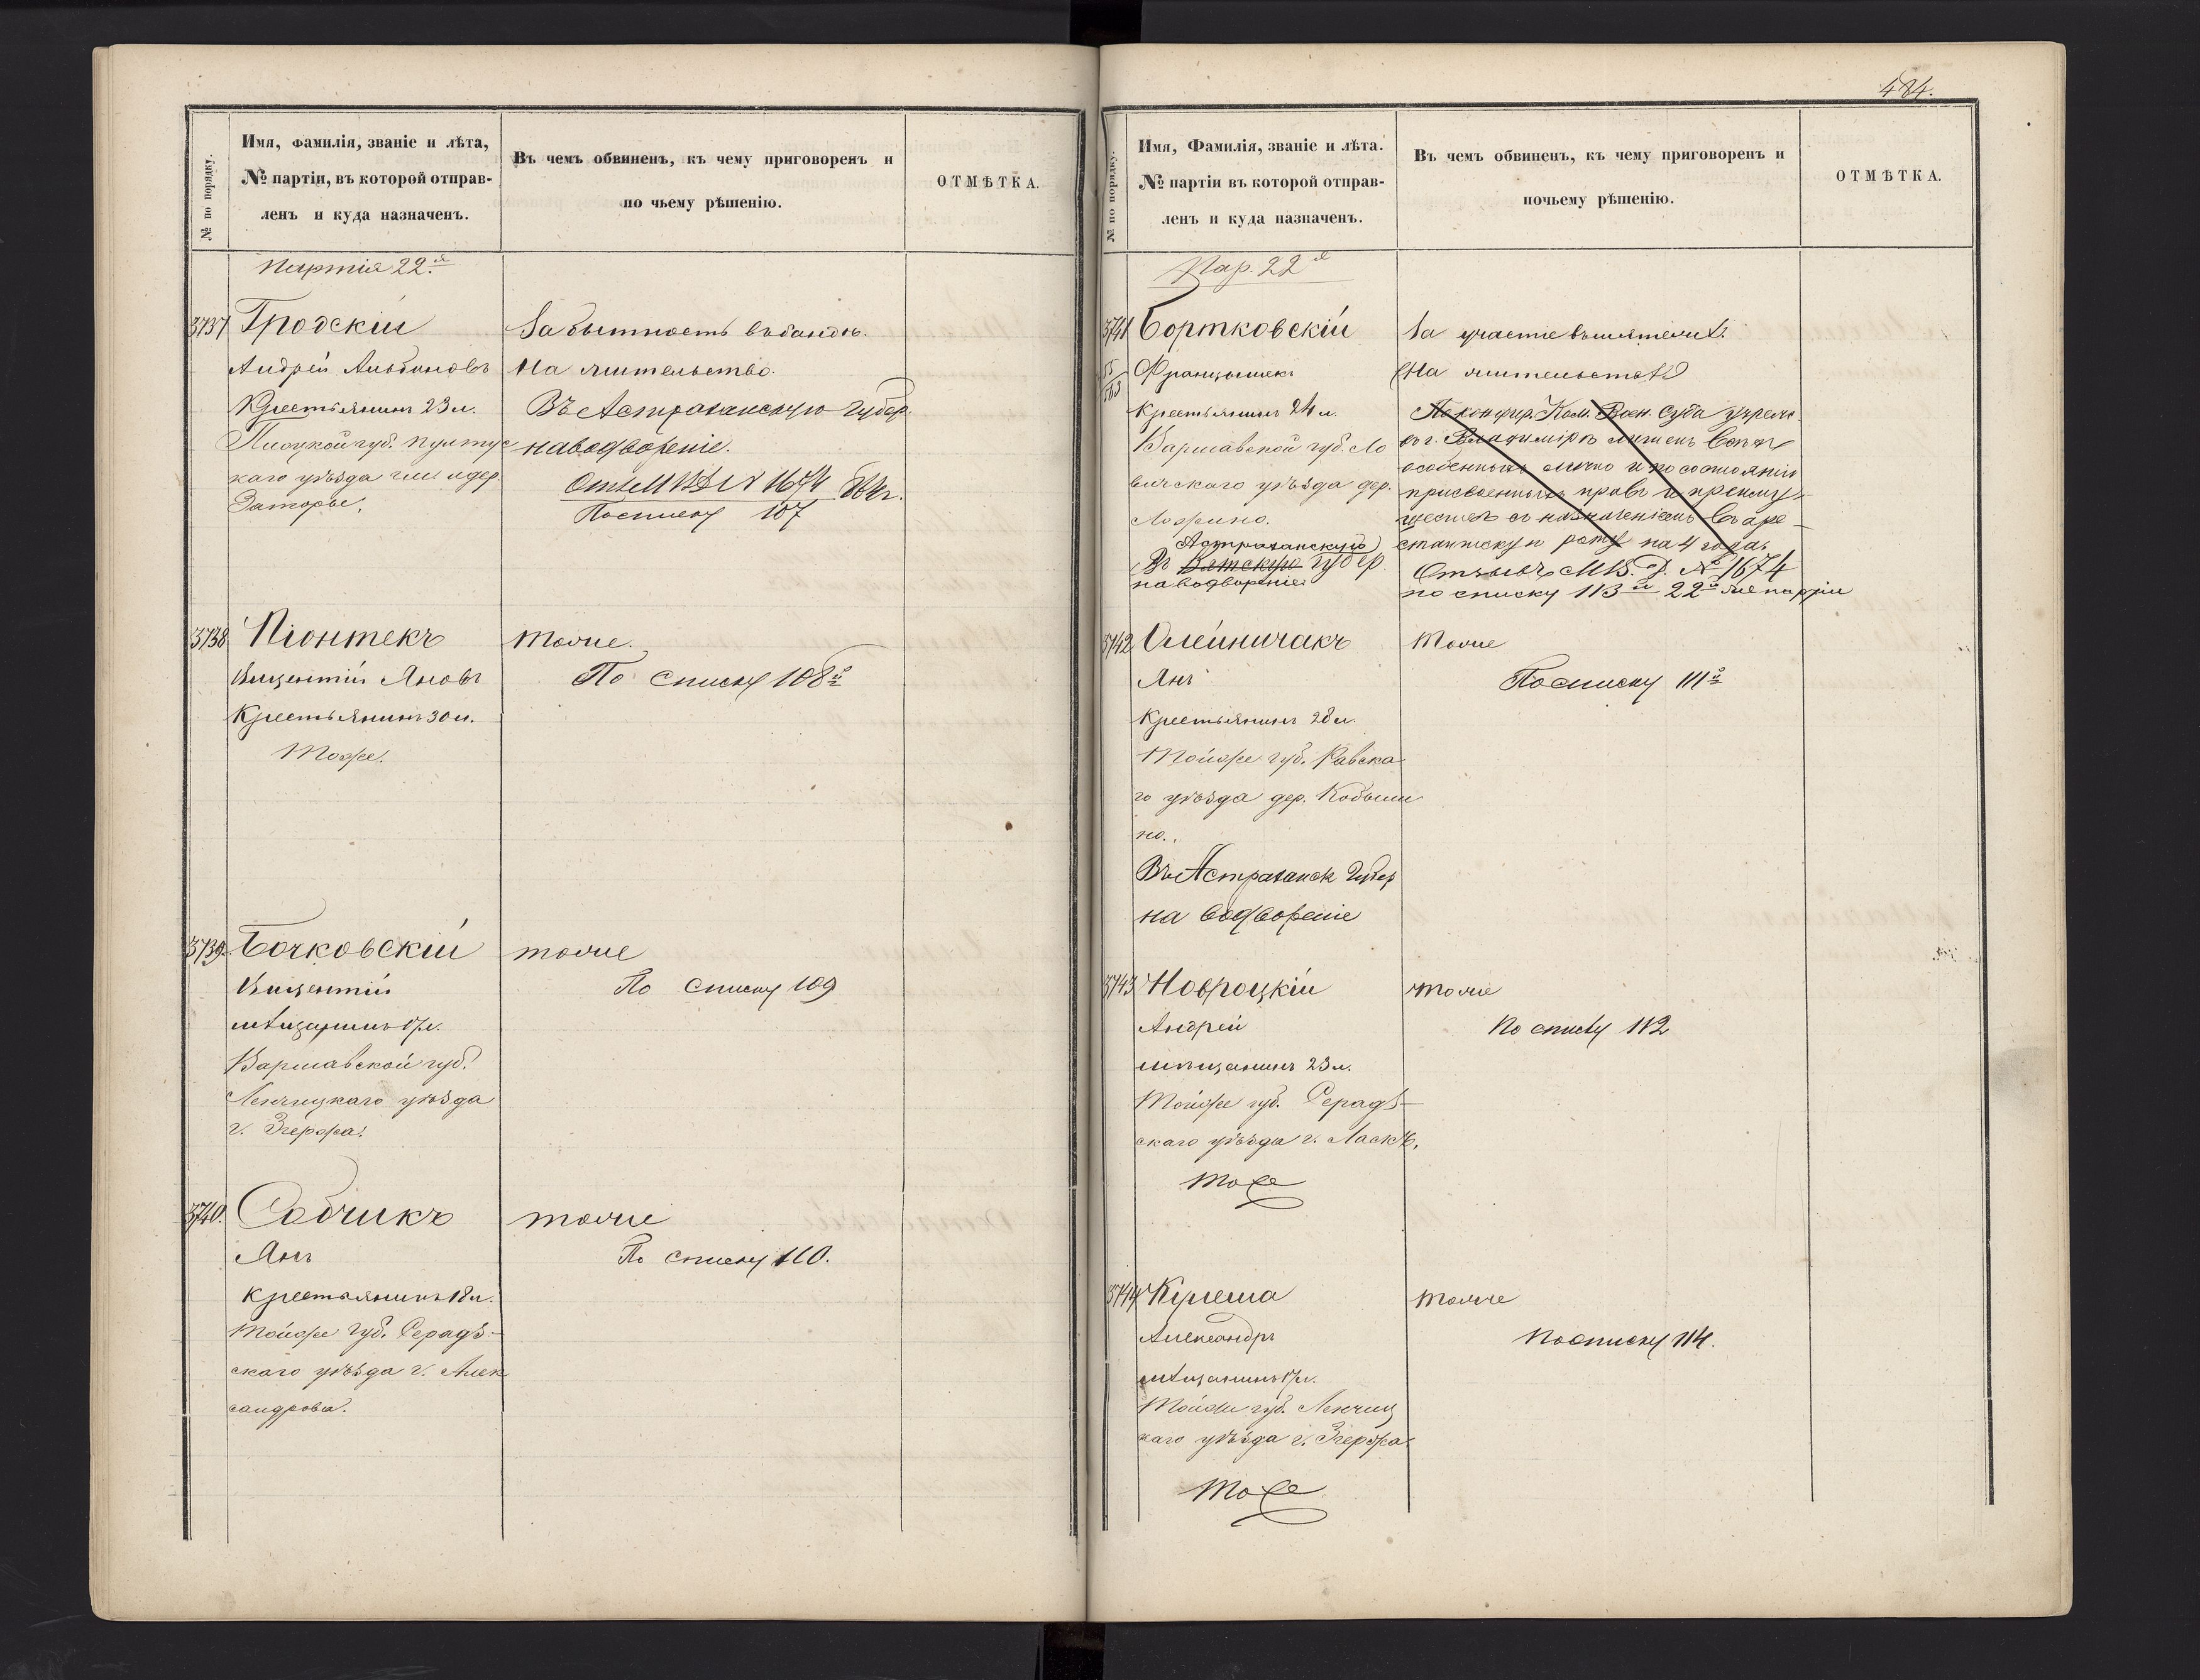 484.
№ по порядку.
Имя, фамилія, званіе и лѣта,
№ партіи, въ которой отправ-
ленъ и куда назначенъ.
Въ чемъ обвиненъ, къ чему приговоренъ и
по чьему рѣшенію.
ОТМѢТКА.
Партія 22.я
3737
Гродскій
Андрей Альбиновъ
Крестьянинъ 23 л.
Плоцкой губ. Пултус
каго уѣзда гми и дер.
Заторы.
За бытность въ бандѣ.
На жительство.
Въ Астраханскую губер.
на водвореніе.
Отз. М В Д № 1674 864 г.
По списку 107
3738
Піонтекъ
Викентій Яновъ
Крестьянинъ 30 л.
Тоже.
тоже.
По списку 108й
3739.
Бочковскій
Викентій
мѣщанинъ 17 л.
Варшавской губ.
Ленчицкаго уѣзда
г. Згержа.
тоже
По списку 109
3740.
Собчикъ
Янъ
Крестьянинъ 18 л.
Тойже губ. Серадз-
скаго уѣзда г. Алек
сандрова.
тоже
По списку 110.
№ по порядку.
Имя, Фамилія, званіе и лѣта.
№ партіи въ которой отправ-
ленъ и куда назначенъ.
Въ чемъ обвиненъ, къ чему приговоренъ и
почьему рѣшенію.
ОТМѢТКА.
Пар. 22я
3741
Бортковскій
Францишекъ
Крестьянинъ 24 л.
Варшавской губ. Ло
вичскаго уѣзда дер.
Астраханскую
Въ Вятскую губер.
на водвореніе
За участіе въ мятежѣ.
На жительство
По конфир. Ком. Воен. Суда учрежд.
въ г. Владимірѣ лишенъ всѣхъ
особенныхъ лично и по состоянію
присвоенныхъ правъ и преиму-
ществъ съ назначеніемъ въ аре-
стантскую роту на 4 года.
Отзывъ М В. Д. № 1674
по списку 113й 22й же партіи
3742
Олейничакъ
Янъ
Крестьянинъ 28 л.
Тойже губ. Равска
го уѣзда дер. Кобыли
но.
Въ Астраханск губер
на водвореніе
тоже
По списку 111й
3743
Новроцкій
Андрей
мѣщанинъ 23 л.
Тойже губ. Серадз-
скаго уѣзда г. Ласкъ.
тоже
тоже
По списку 112
3744
Кулеша
Александръ
мѣщанинъ 17 л.
Тойже губ. Ленчиц
каго уѣзда г. Згержа.
тоже
тоже
По списку 114.